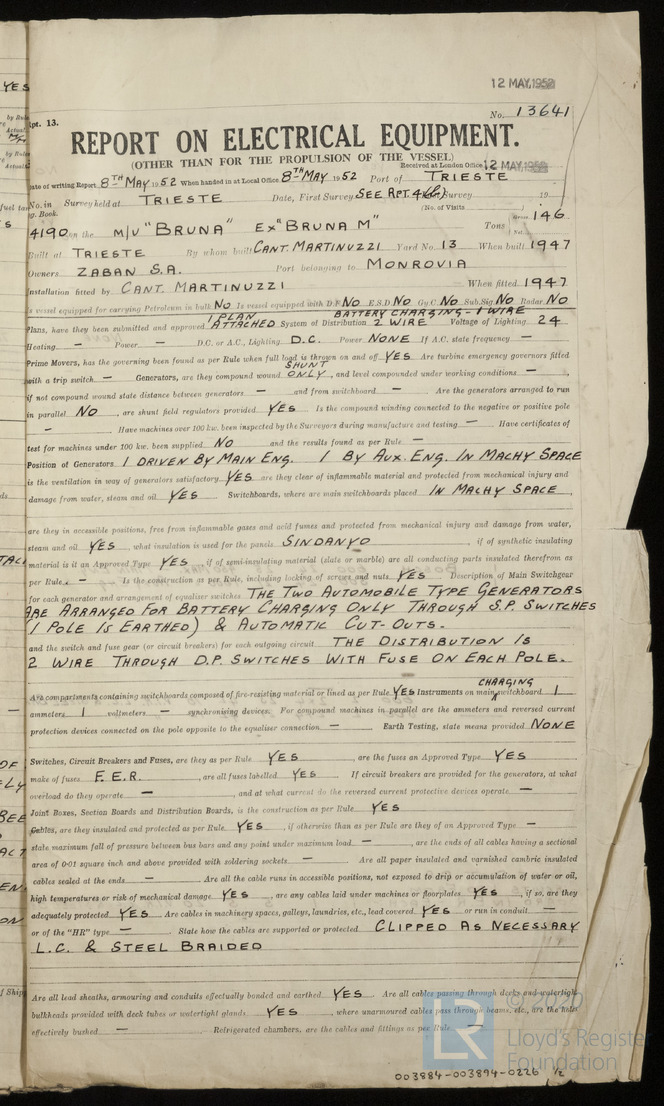 12 MAY. 1952
Rpt. 13.
No. 13641
REPORT ON ELECTRICAL EQUIPMENT.
(OTHER THAN FOR THE PROPULSION OF THE VESSEL)
Received at London Office 12 MAY. 1952
Date of writing Report 8TH MAY 1952 When handed in at Local Office 8TH MAY 1952 Port of TRIESTE
No. in Survey held at TRIESTE Date, First Survey SEE RPT. 4(b) Survey 19
Reg. Book. (No. of Visits
4190 on the M/V "BRUNA" EX "BRUNA M" Tons Gross 146 Net
Built at TRIESTE By whom built CANT. MARTINUZZI Yard No. 13 When built 1947
Owners ZABAN S.A. Port belonging to MONROVIA
Installation fitted by CANT. MARTINUZZI When fitted 1947
Is vessel equipped for carrying Petroleum in bulk NO Is vessel equipped with D.F. NO E.S.D. NO Gy.C. NO Sub.Sig. NO Radar NO
1 PLAN BATTERY CHARGING - 1 WIRE
Plans, have they been submitted and approved ATTACHED System of Distribution 2 WIRE Voltage of Lighting 24
Heating - Power - D.C. or A.C., Lighting D.C. Power NONE If A.C. state frequency -
Prime Movers, has the governing been found as per Rule when full load is thrown on and off YES Are turbine emergency governors fitted
SHUNT
with a trip switch - Generators, are they compound wound ONLY, and level compounded under working conditions -,
if not compound wound state distance between generators - and from switchboard - Are the generators arranged to run
in parallel NO, are shunt field regulators provided YES Is the compound winding connected to the negative or positive pole
- Have machines over 100 kw. been inspected by the Surveyors during manufacture and testing - Have certificates of
test for machines under 100 kw. been supplied NO and the results found as per Rule -
Position of Generators 1 DRIVEN BY MAIN ENG. 1 BY AUX. ENG. IN MACHY SPACE
is the ventilation in way of generators satisfactory YES are they clear of inflammable material and protected from mechanical injury and
damage from water, steam and oil YES Switchboards, where are main switchboards placed IN MACHY SPACE,
are they in accessible positions, free from inflammable gases and acid fumes and protected from mechanical injury and damage from water,
steam and oil YES, what insulation is used for the panels SINDANYO, if of synthetic insulating
material is it an Approved Type YES, if of semi-insulating material (slate or marble) are all conducting parts insulated therefrom as
per Rule - Is the construction as per Rule, including locking of screws and nuts YES Description of Main Switchgear
for each generator and arrangement of equaliser switches THE TWO AUTOMOBILE TYPE GENERATORS
ARE ARRANGED FOR BATTERY CHARGING ONLY THROUGH S.P. SWITCHES
(1 POLE IS EARTHED) & AUTOMATIC CUT-OUTS.
and the switch and fuse gear (or circuit breakers) for each outgoing circuit THE DISTRIBUTION IS
2 WIRE THROUGH D.P. SWITCHES WITH FUSE ON EACH POLE.
CHARGING
Are compartments containing switchboards composed of fire-resisting material or lined as per Rule YES Instruments on main switchboard 1
ammeters 1 voltmeters - synchronising devices. For compound machines in parallel are the ammeters and reversed current
protection devices connected on the pole opposite to the equaliser connection - Earth Testing, state means provided NONE
Switches, Circuit Breakers and Fuses, are they as per Rule YES, are the fuses an Approved Type YES,
make of fuses F.E.R., are all fuses labelled YES If circuit breakers are provided for the generators, at what
overload do they operate -, and at what current do the reversed current protective devices operate -
Joint Boxes, Section Boards and Distribution Boards, is the construction as per Rule YES
Cables, are they insulated and protected as per Rule YES, if otherwise than as per Rule are they of an Approved Type -
state maximum fall of pressure between bus bars and any point under maximum load -, are the ends of all cables having a sectional
area of 0·01 square inch and above provided with soldering sockets - Are all paper insulated and varnished cambric insulated
cables sealed at the ends - Are all the cable runs in accessible positions, not exposed to drip or accumulation of water or oil,
high temperatures or risk of mechanical damage YES, are any cables laid under machines or floorplates YES, if so, are they
adequately protected YES Are cables in machinery spaces, galleys, laundries, etc., lead covered YES or run in conduit -
or of the "HR" type - State how the cables are supported or protected CLIPPED AS NECESSARY
L.C. & STEEL BRAIDED
Are all lead sheaths, armouring and conduits effectually bonded and earthed YES Are all cables passing through decks and watertight
bulkheads provided with deck tubes or watertight glands YES, where unarmoured cables pass through beams, etc., are the holes
effectively bushed - Refrigerated chambers, are the cables and fittings as per Rule -
© 2020
LR Lloyd's Register
Foundation
003884-003894-0226 1/2